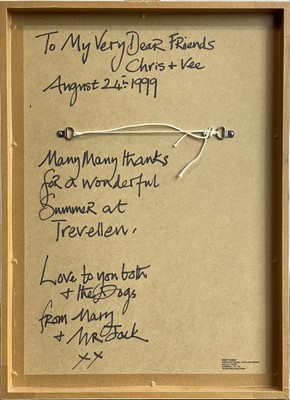 To My Very Dear Friends
Chris + Vee
August 24th 1999
Many Many thanks
for a wonderful
Summer at
Trevellen.
Love to you both
+ the Dogs
from Mary
+ Mr. Jack
xx